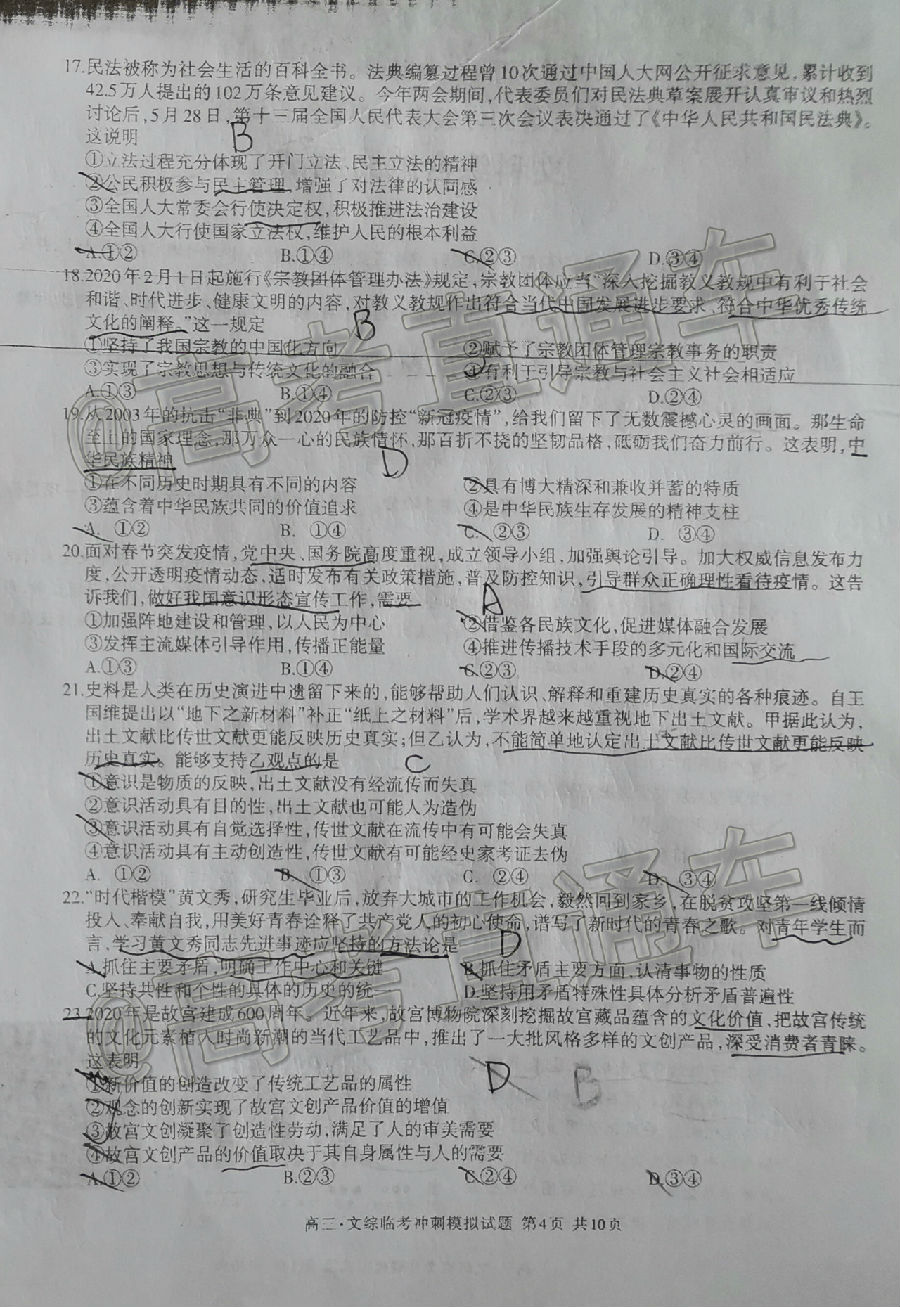 17.民法被称为社会生活的百科全书。法典编纂过程曾10次通过中国人大网公开征求意见,累计收到
42.5万人提出的102万条意见建议。今年两会期间,代表委员们对民法典草案展开认真审议和热烈
讨论后,5月28日,第十三届全国人民代表大会第三次会议表决通过了《中华人民共和国民法典》。
这说明
B
①立法过程充分体现了开门立法、民主立法的精神
②公民积极参与民主管理,增强了对法律的认同感
③全国人大常委会行使决定权,积极推进法治建设
④全国人大行使国家立法权,维护人民的根本利益
A.①② B.①④ C.②③ D.③④
18.2020年2月1日起施行《宗教团体管理办法》规定,宗教团体应当“深入挖掘教义教规中有利于社会
和谐、时代进步、健康文明的内容,对教义教规作出符合当代中国发展进步要求、符合中华优秀传统
文化的阐释。”这一规定
B
①坚持了我国宗教的中国化方向 ②赋予了宗教团体管理宗教事务的职责
③实现了宗教思想与传统文化的融合 ④有利于引导宗教与社会主义社会相适应
A.①③ B.①④ C.②③ D.②④
19.从2003年的抗击“非典”到2020年的防控“新冠疫情”,给我们留下了无数震撼心灵的画面。那生命
至上的国家理念,那万众一心的民族情怀,那百折不挠的坚韧品格,砥砺我们奋力前行。这表明,中
华民族精神
D
①在不同历史时期具有不同的内容 ②具有博大精深和兼收并蓄的特质
③蕴含着中华民族共同的价值追求 ④是中华民族生存发展的精神支柱
A. ①② B. ①④ C. ②③ D. ③④
20.面对春节突发疫情,党中央、国务院高度重视,成立领导小组,加强舆论引导。加大权威信息发布力
度,公开透明疫情动态,适时发布有关政策措施,普及防控知识,引导群众正确理性看待疫情。这告
诉我们,做好我国意识形态宣传工作,需要
A
①加强阵地建设和管理,以人民为中心 ②借鉴各民族文化,促进媒体融合发展
③发挥主流媒体引导作用,传播正能量 ④推进传播技术手段的多元化和国际交流
A.①③ B.①④ C.②③ D.②④
21.史料是人类在历史演进中遗留下来的,能够帮助人们认识、解释和重建历史真实的各种痕迹。自王
国维提出以“地下之新材料”补正“纸上之材料”后,学术界越来越重视地下出土文献。甲据此认为,
出土文献比传世文献更能反映历史真实;但乙认为,不能简单地认定出土文献比传世文献更能反映
历史真实。能够支持乙观点的是
C
①意识是物质的反映,出土文献没有经流传而失真
②意识活动具有目的性,出土文献也可能人为造伪
③意识活动具有自觉选择性,传世文献在流传中有可能会失真
④意识活动具有主动创造性,传世文献有可能经史家考证去伪
A. ①② B. ①③ C. ②④ D. ③④
22.“时代楷模”黄文秀,研究生毕业后,放弃大城市的工作机会,毅然回到家乡,在脱贫攻坚第一线倾情
投入、奉献自我,用美好青春诠释了共产党人的初心使命,谱写了新时代的青春之歌。对青年学生而
言,学习黄文秀同志先进事迹应坚持的方法论是
D
A.抓住主要矛盾,明确工作中心和关键 B.抓住矛盾主要方面,认清事物的性质
C.坚持共性和个性的具体的历史的统一 D.坚持用矛盾特殊性具体分析矛盾普遍性
23.2020年是故宫建成600周年。近年来,故宫博物院深刻挖掘故宫藏品蕴含的文化价值,把故宫传统
的文化元素植入时尚新潮的当代工艺品中,推出了一大批风格多样的文创产品,深受消费者青睐。
这表明
D B
①新价值的创造改变了传统工艺品的属性
②观念的创新实现了故宫文创产品价值的增值
③故宫文创凝聚了创造性劳动,满足了人的审美需要
④故宫文创产品的价值取决于其自身属性与人的需要
A.①② B.②③ C.②④ D.③④
高三·文综临考冲刺模拟试题 第4页 共10页
@高考直通车
@高考直通车